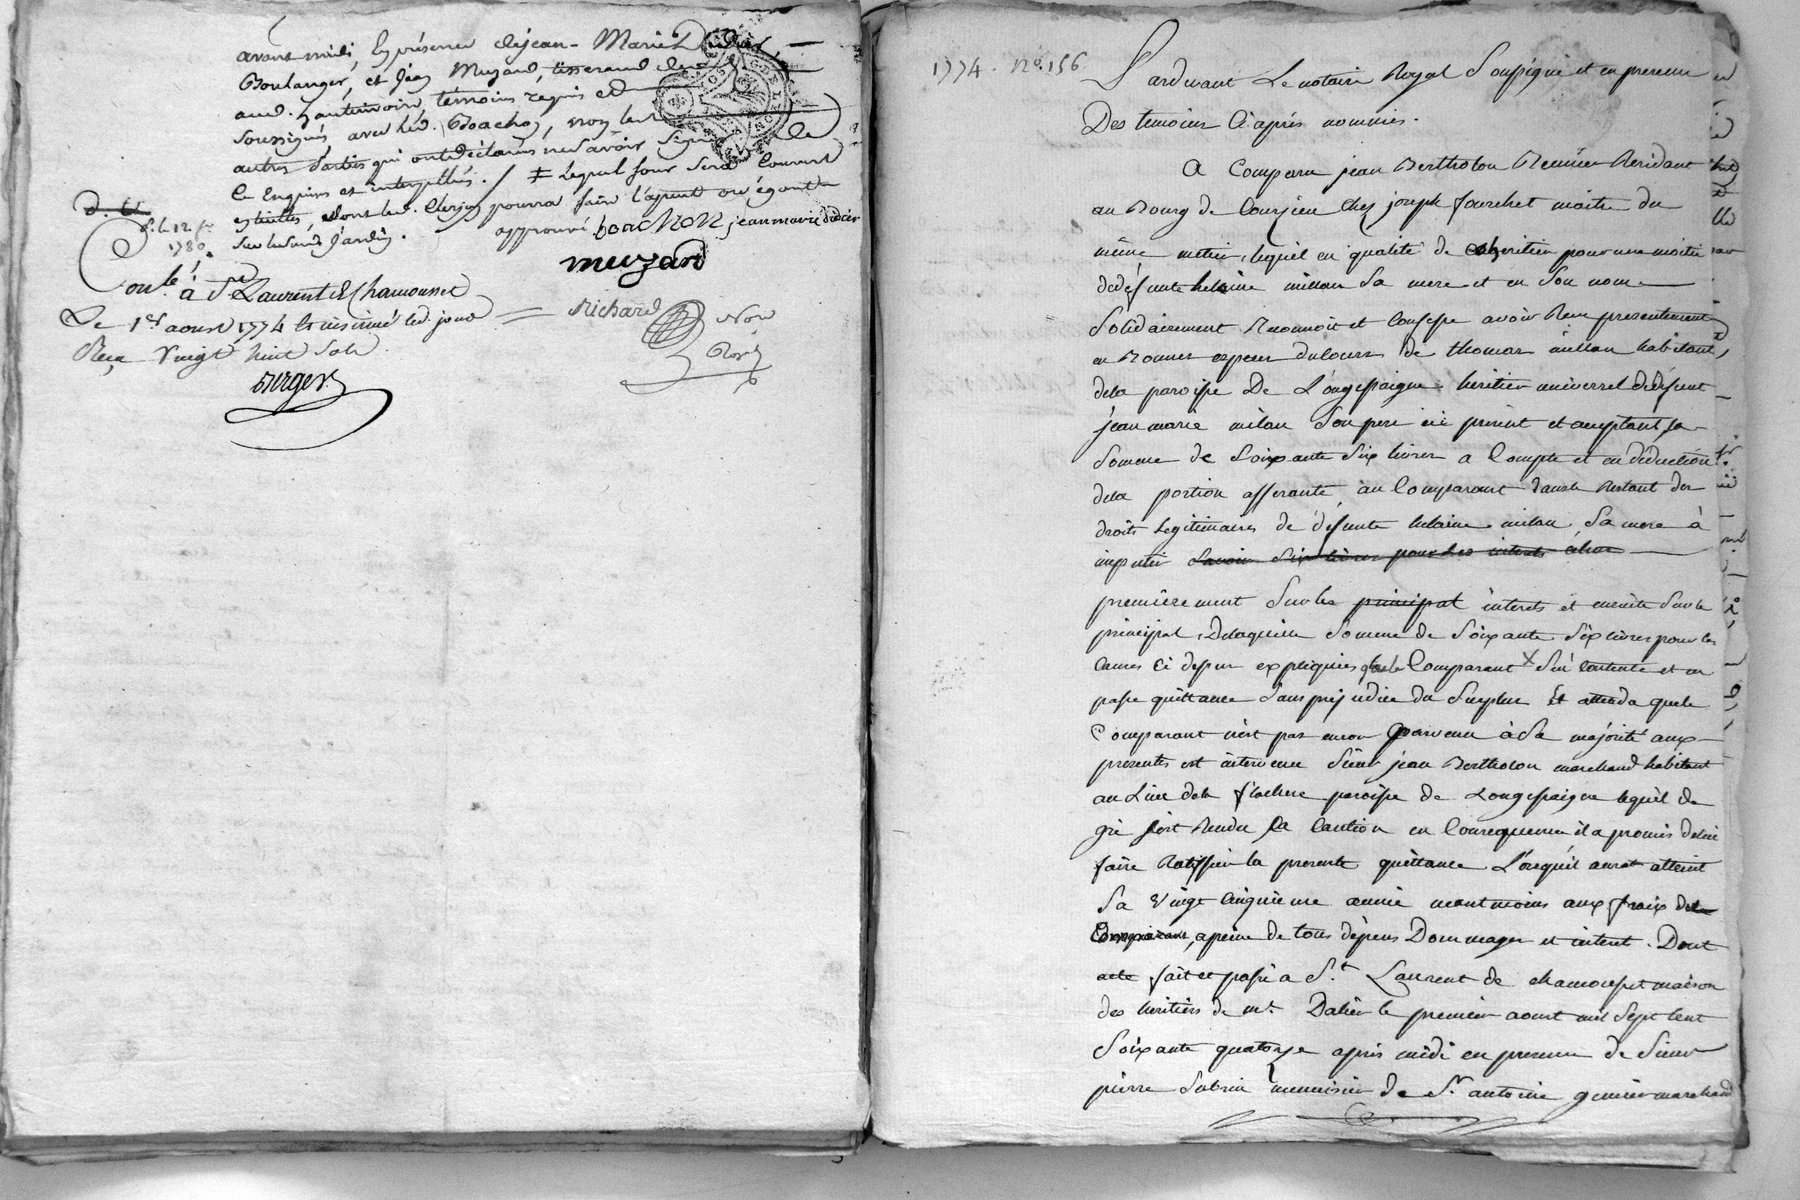 avant midi, En présence de jean-Marie Didier,
Boulanger, et Jean Muzard, tisserand
aud. témoins requis et
soussignés avec led. Boachon, non les
autres parties qui ont déclarés ne savoir signer de
ce Enquis et interpellés. / ‡ Lequel four sera Couvert
en tuilles, dont led. pourra faire l'apent ou égout
sur led. Jardin.
approuvé boachon jean marie didier
muzard
d. C.
1780.
Conlé à St Laurent de Chamousset
Le 1er aoust 1774 led. jour
Reçu vingt huit sols
Berger
Richard Nore
Royal
1774. No. 156.
Pardevant Le notaire Royal Soussigné et en presence
Des temoins Ci après nommés.
A Comparu jean Bertholon Meunier Residant
au Bourg de Courzieu Chez joseph fourchet maitre du
même metier, lequel en qualité de coheritier pour une moitié
de défunte helaine millan Sa mere et en Son nom
Solidairement Reconnoit et Confesse avoir Reçu presentement
en Bonnes especes du cours de thomas millan habitant
de la paroisse De Longessaigne heritier universel de défunt
jean marie milan Son pere ici présent et acceptant, la
Somme de Soixante Six livres a Compte et en déduction
de la portion afferante au Comparant dans le Restant des
droits Legitimaires de défunte helaine milan Sa mere à
imputer Savoir Six livres pour les interets échus
premièrement Sur les principal interets et ensuite Sur le
principal, De laquelle Somme de Soixante Six livres pour les
causes ci dessus expliquées le Comparant X S'en contente et en
passe quittance Sans prejudice du Surplus Et attendu que le
Comparant n'est pas encor parvenu à Sa majorité aux
presentes est intervenu Sieur jean Bertholon marchand habitant
au Lieu de la flachere paroisse de Longessaigne lequel de
gré s'est Rendu Sa Caution en Consequence il a promis de lui
faire Ratiffier la presente quittance Lorsqu'il aurat atteint
Sa Vingt Cinquieme année neantmoins aux fraix de
Comparant, a peine de tous dépens Dommages et interet. Dont
acte fait et passé a St. Laurent de chamousset maison
des heritiers de mr. Dalier le premier aoust mil Sept Cent
Soixante quatorze après midi en presence de Sieur
pierre Subrin menuisier de Sr. antoine marchand